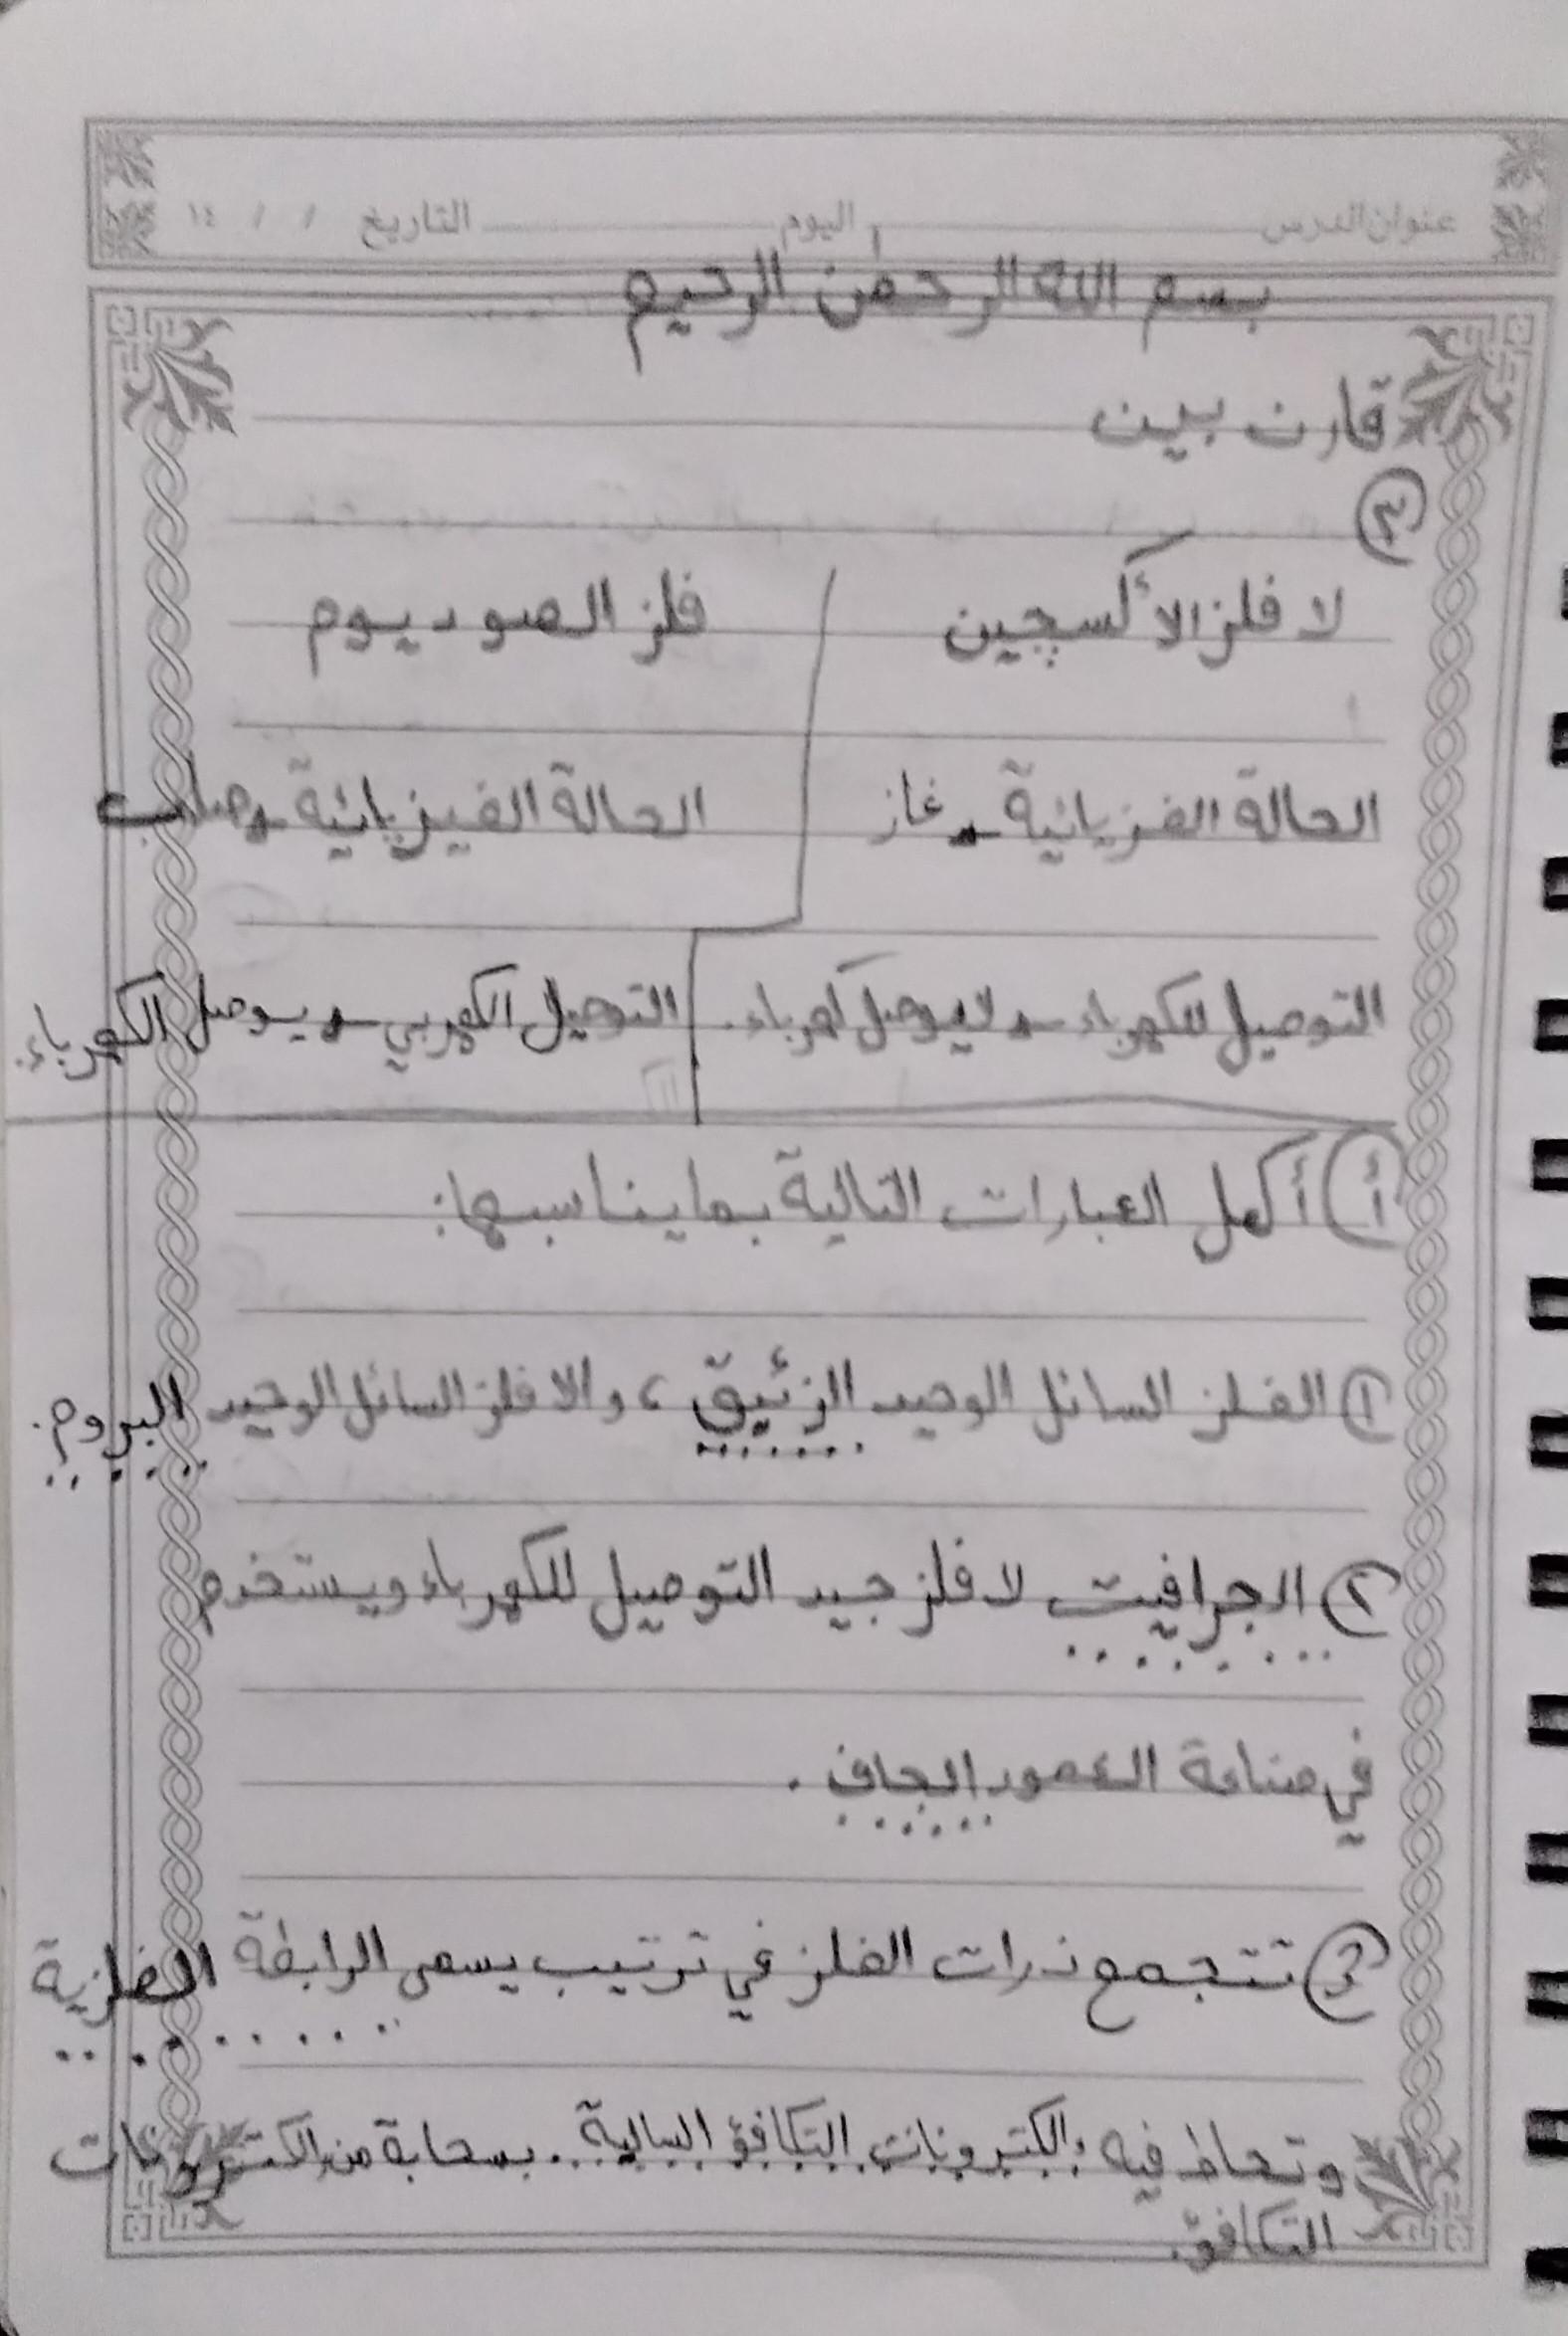 عنوان الدرس اليوم التاريخ / / ١٤
بسم الله الرحمٰن الرحيم
قارن بين
٣
لا فلز الأكسجين فلز الصوديوم
الحالة الفزيائية غاز الحالة الفيزيائية صلب
التوصيل للكهرباء لا يوصل كهرباء. التوصيل الكهربي يوصل الكهرباء.
أ) أكمل العبارات التالية بما يناسبها:
١) الفلز السائل الوحيد الزئبق، والا فلز السائل الوحيد البروم.
٢) الجرافيت لا فلز جيد التوصيل للكهرباء ويستخدم
في صناعة العمود الجاف.
٣) تتجمع ذرات الفلز في ترتيب يسمى الرابطة الفلزية
وتحاط فيه إلكترونات التكافؤ السالبة بسحابة من إلكترونات
التكافؤ.